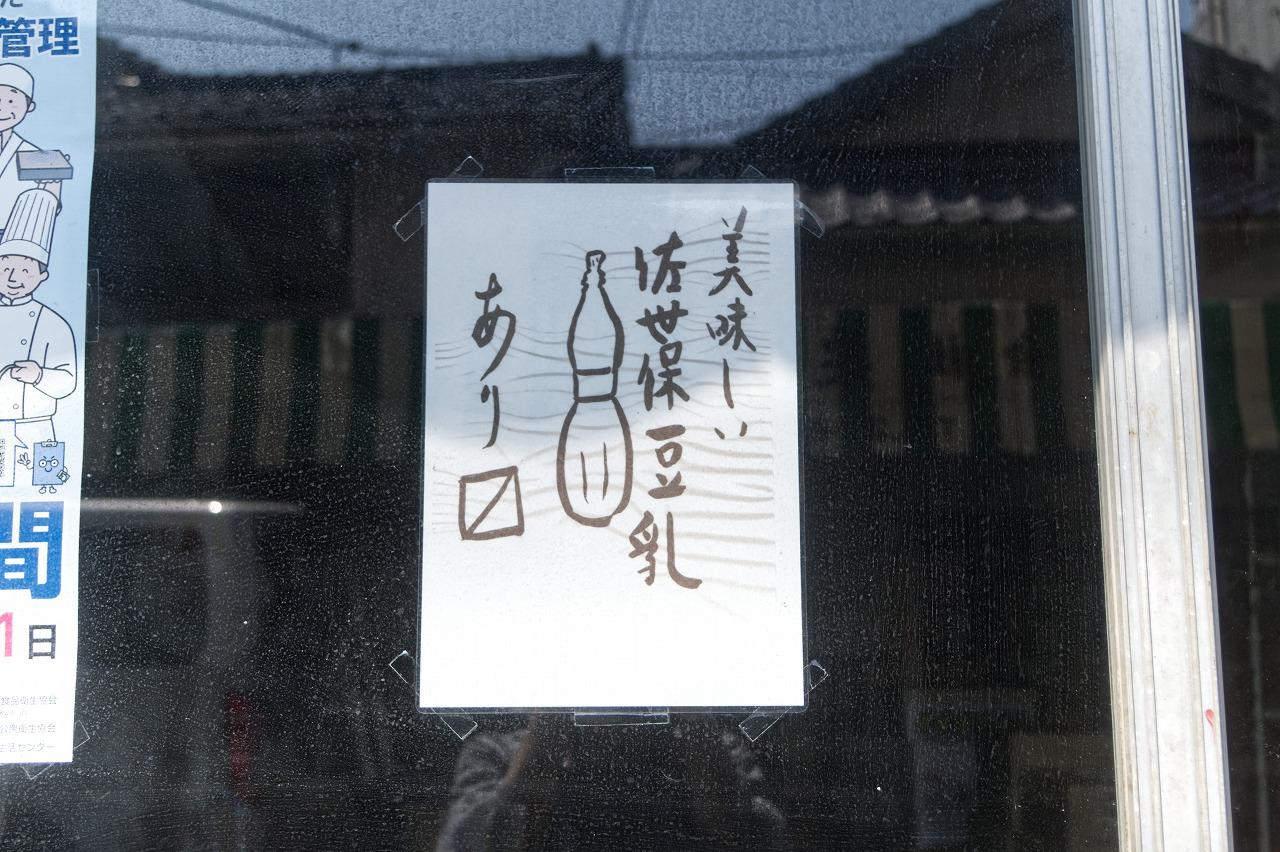 美味しい
佐世保豆乳
あり〼
管理
間
1日
食品衛生協会
公衆衛生協会
生活センター